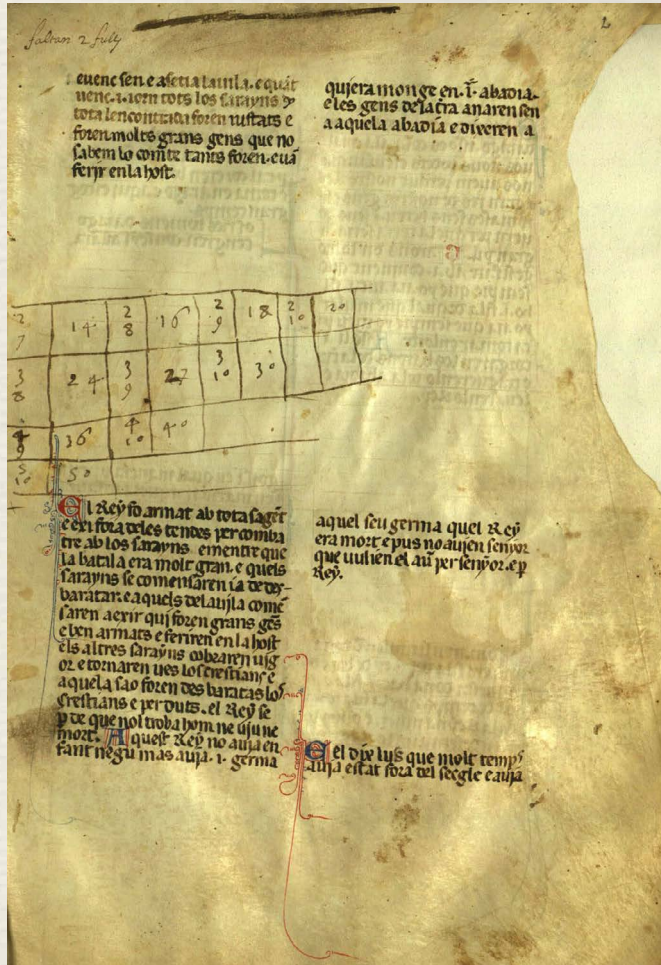 faltan 2 fulls
2
evenc sen. e asetia la vila. e quāt
venc .i. iorn tots los sarayns ⁊
tota lencontrada foren iustats e
foren molts grans gens que no
sabem lo comte tants foren. e vā
ferir en la host.
2 7 14 2 8 16 2 9 18 2 10 20
3 8 24 3 9 27 3 10 30
4 9 36 4 10 40
5 10 50
El Rey fo armat ab tota sa gēt
e exi fora de les tendes per comba
tre ab los sarayns. e mentre que
la batala era molt gran. e quels
sarayns se comensaren ia de des-
baratar. e aquels de la vila comē
saren a exir qui foren grans gēs
e ben armats e feriren en la host
els altres sarayns cobraren vig
or. e tornaren ves los crestians e
aquela sao foren desbaratas los
crestians e perduts. el Rey se
p̄de que nol troba hom ne viu ne
mort. Aquest Rey no avia en
fant negu mas avia .i. germa
quiera monge en .ī. abadia.
e les gens de la tra anaren sen
a aquela abadia e dixeren a
aquel seu germa quel Rey
era mort e pus no avien senyor
que vulien el au̅ per senyor. e p̱
Rey.
E el dix lus que molt temps
avia estat fora del segle e avia